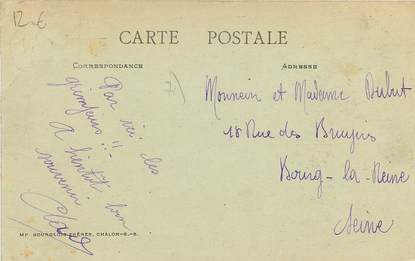 12 €
CARTE POSTALE
CORRESPONDANCE
ADRESSE
Par ici les
grimpeurs !!-
A bientôt bon
souvenir
71
Monsieur et Madame Dubut
18 Rue des Bruyères
Bourg-la-Reine
Seine
MP. BOURGEOIS FRÈRES, CHALON-S.-S.